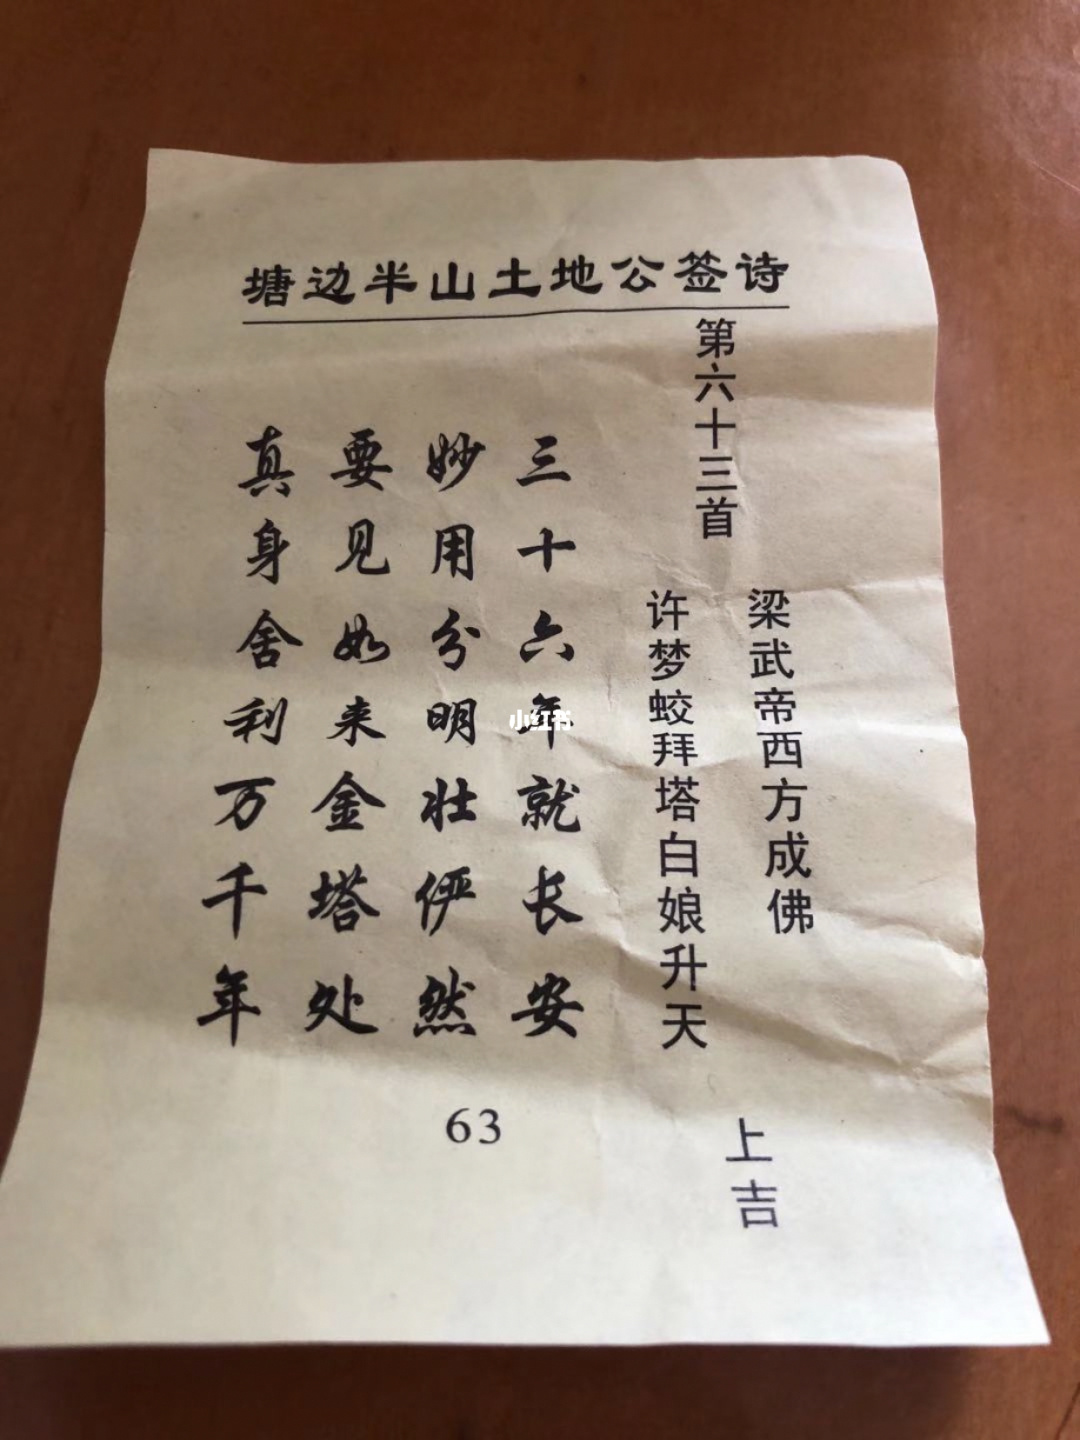 塘边半山土地公签诗
第六十三首
梁武帝西方成佛
许梦蛟拜塔白娘升天
上吉
三十六年就长安
妙用分明壮俨然
要见如来金塔处
真身舍利万千年
63
小红书